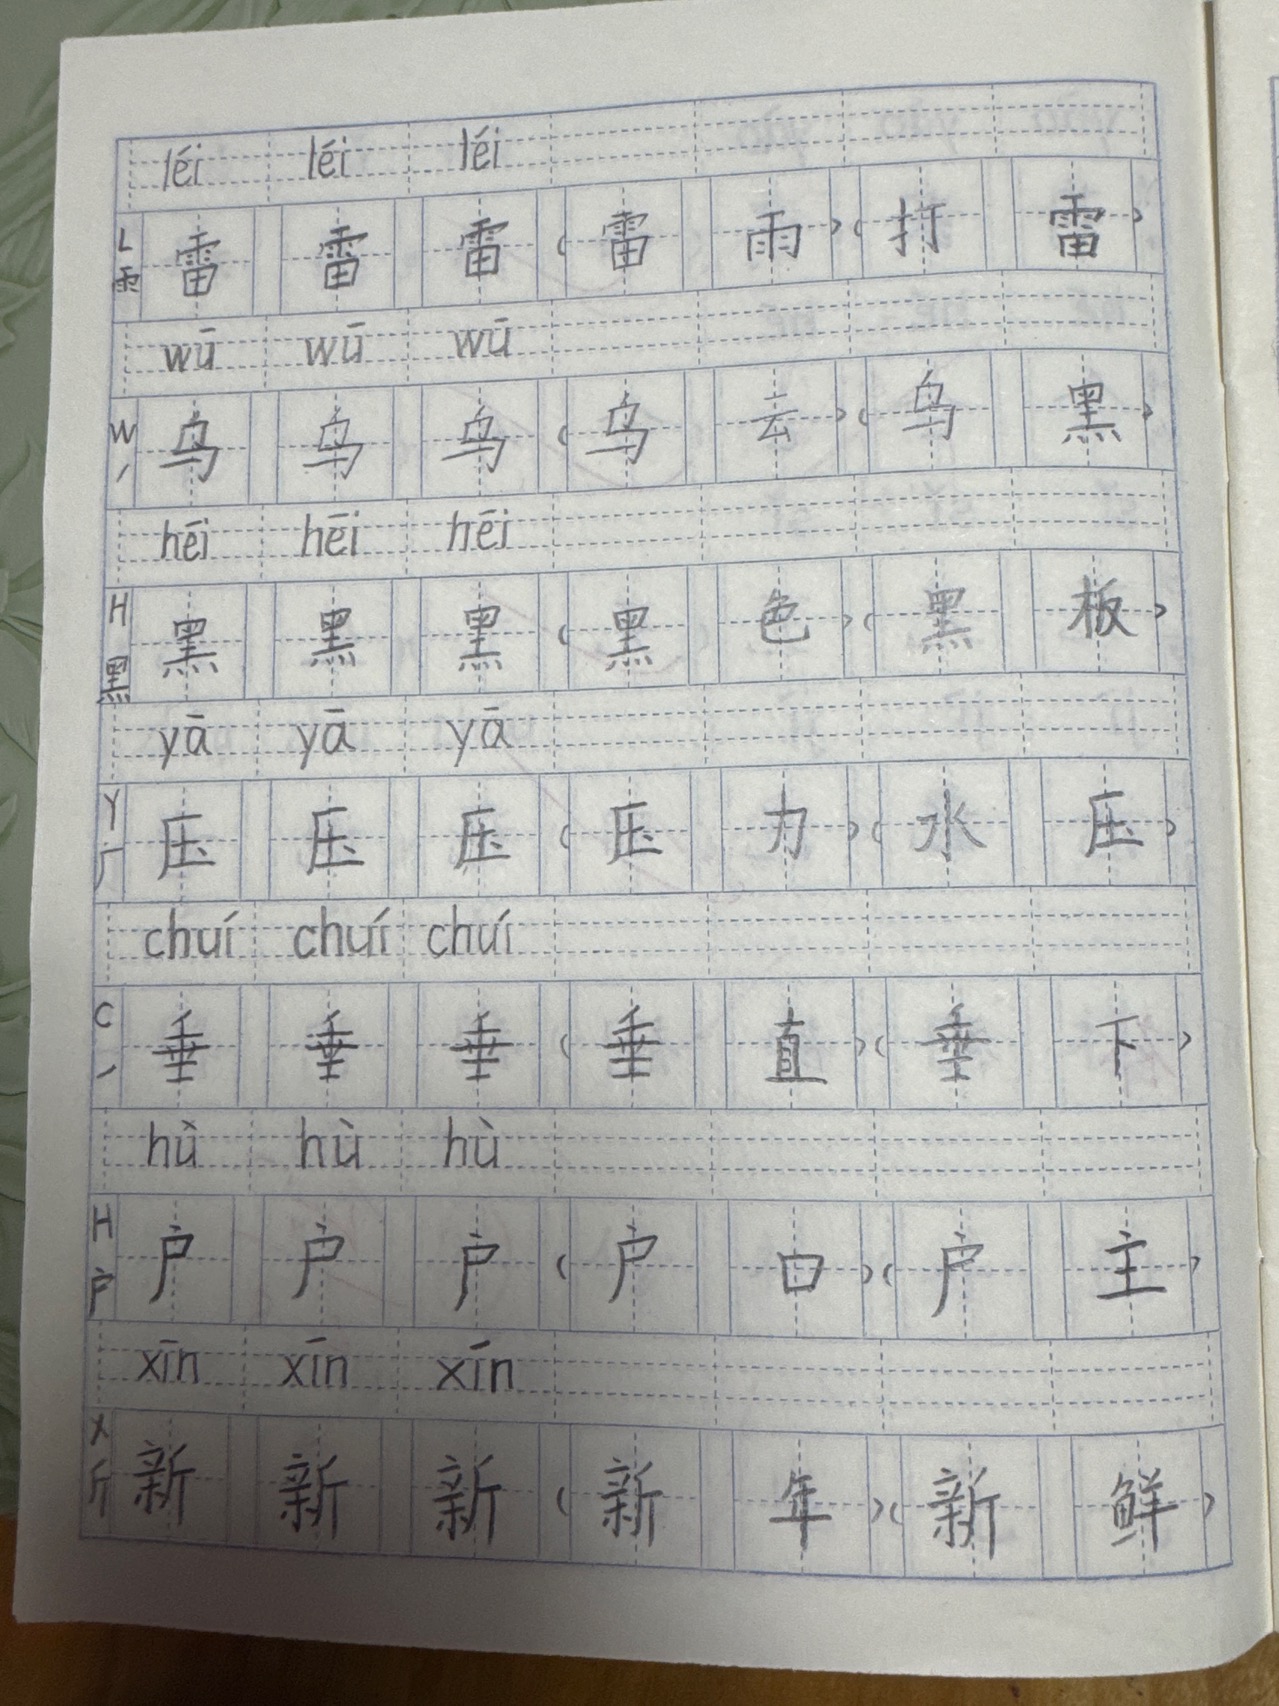 léi léi léi
L 雨 雷 雷 雷 (雷 雨) (打 雷)
wū wū wū
W 丿 乌 乌 乌 (乌 云) (乌 黑)
hēi hēi hēi
H 黑 黑 黑 黑 (黑 色) (黑 板)
yā yā yā
Y 厂 压 压 压 (压 力) (水 压)
chuí chuí chuí
C 丿 垂 垂 垂 (垂 直) (垂 下)
hù hù hù
H 户 户 户 户 (户 口) (户 主)
xīn xīn xīn
X 斤 新 新 新 (新 年) (新 鲜)